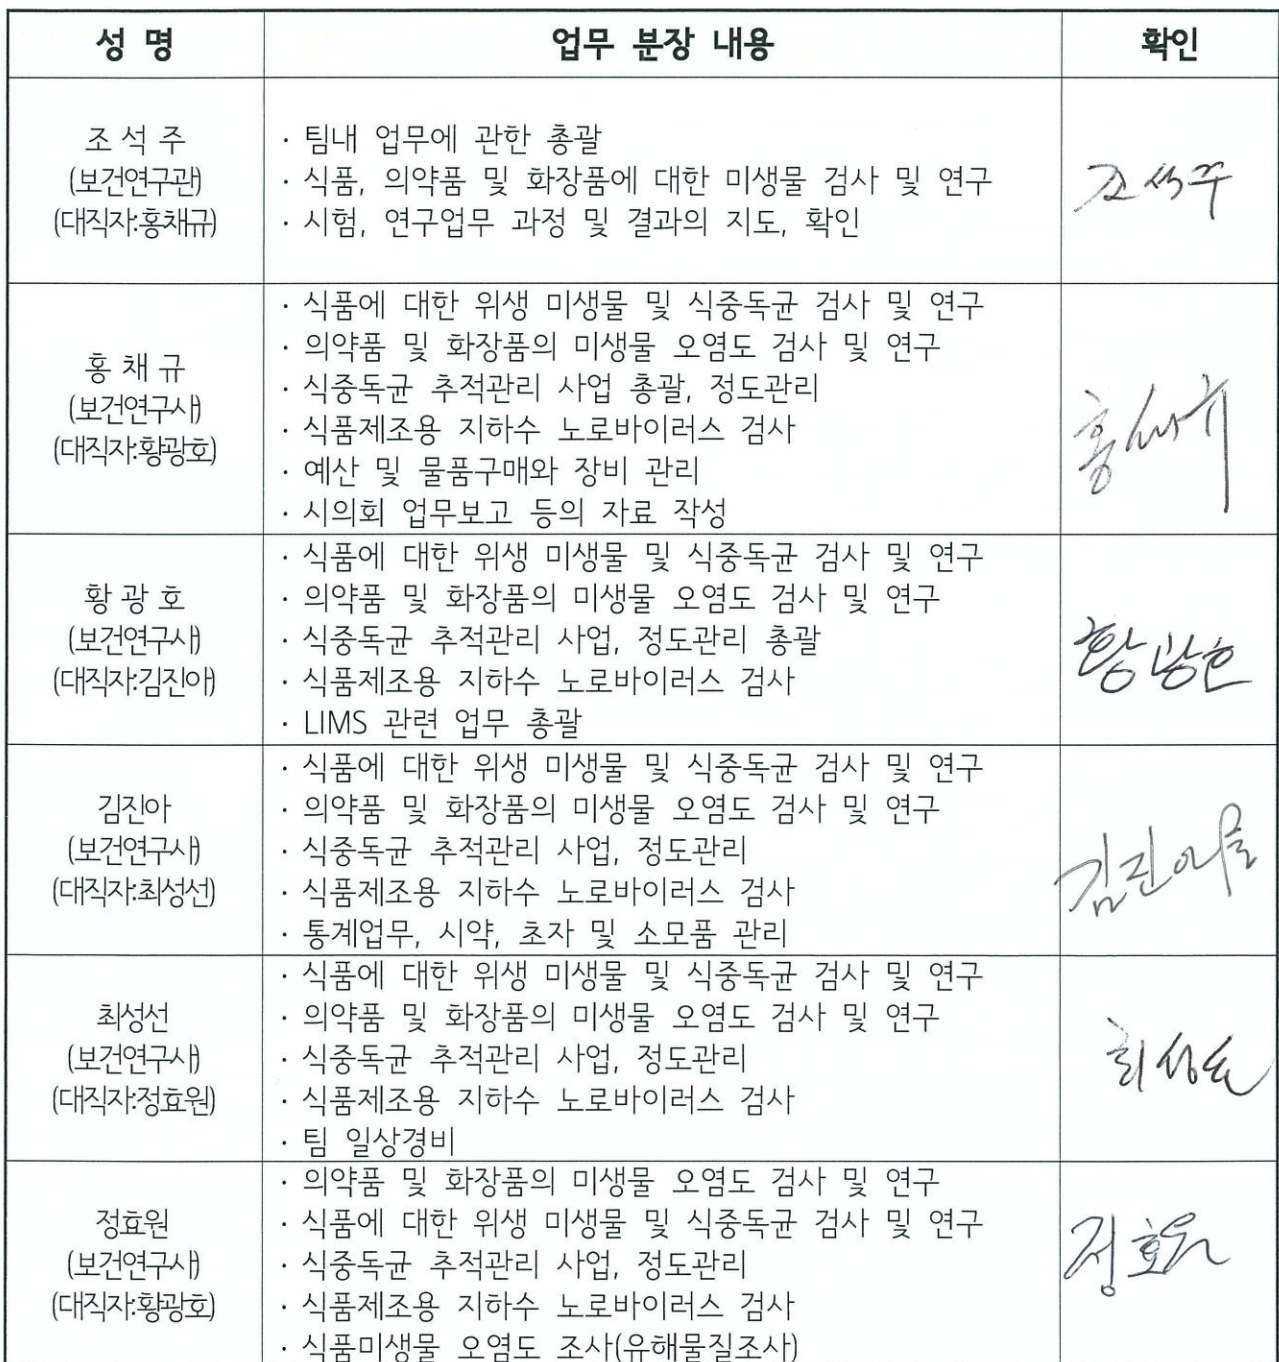 성 명 업무 분장 내용 확인
조 석 주
(보건연구관)
(대직자:홍채규)
· 팀내 업무에 관한 총괄
· 식품, 의약품 및 화장품에 대한 미생물 검사 및 연구
· 시험, 연구업무 과정 및 결과의 지도, 확인
조석주
홍 채 규
(보건연구사)
(대직자:황광호)
· 식품에 대한 위생 미생물 및 식중독균 검사 및 연구
· 의약품 및 화장품의 미생물 오염도 검사 및 연구
· 식중독균 추적관리 사업 총괄, 정도관리
· 식품제조용 지하수 노로바이러스 검사
· 예산 및 물품구매와 장비 관리
· 시의회 업무보고 등의 자료 작성
홍채규
황 광 호
(보건연구사)
(대직자:김진아)
· 식품에 대한 위생 미생물 및 식중독균 검사 및 연구
· 의약품 및 화장품의 미생물 오염도 검사 및 연구
· 식중독균 추적관리 사업, 정도관리 총괄
· 식품제조용 지하수 노로바이러스 검사
· LIMS 관련 업무 총괄
황광호
김진아
(보건연구사)
(대직자:최성선)
· 식품에 대한 위생 미생물 및 식중독균 검사 및 연구
· 의약품 및 화장품의 미생물 오염도 검사 및 연구
· 식중독균 추적관리 사업, 정도관리
· 식품제조용 지하수 노로바이러스 검사
· 통계업무, 시약, 초자 및 소모품 관리
최성선
(보건연구사)
(대직자:정효원)
· 식품에 대한 위생 미생물 및 식중독균 검사 및 연구
· 의약품 및 화장품의 미생물 오염도 검사 및 연구
· 식중독균 추적관리 사업, 정도관리
· 식품제조용 지하수 노로바이러스 검사
· 팀 일상경비
최성선
정효원
(보건연구사)
(대직자:황광호)
· 의약품 및 화장품의 미생물 오염도 검사 및 연구
· 식품에 대한 위생 미생물 및 식중독균 검사 및 연구
· 식중독균 추적관리 사업, 정도관리
· 식품제조용 지하수 노로바이러스 검사
· 식품미생물 오염도 조사(유해물질조사)
정효원